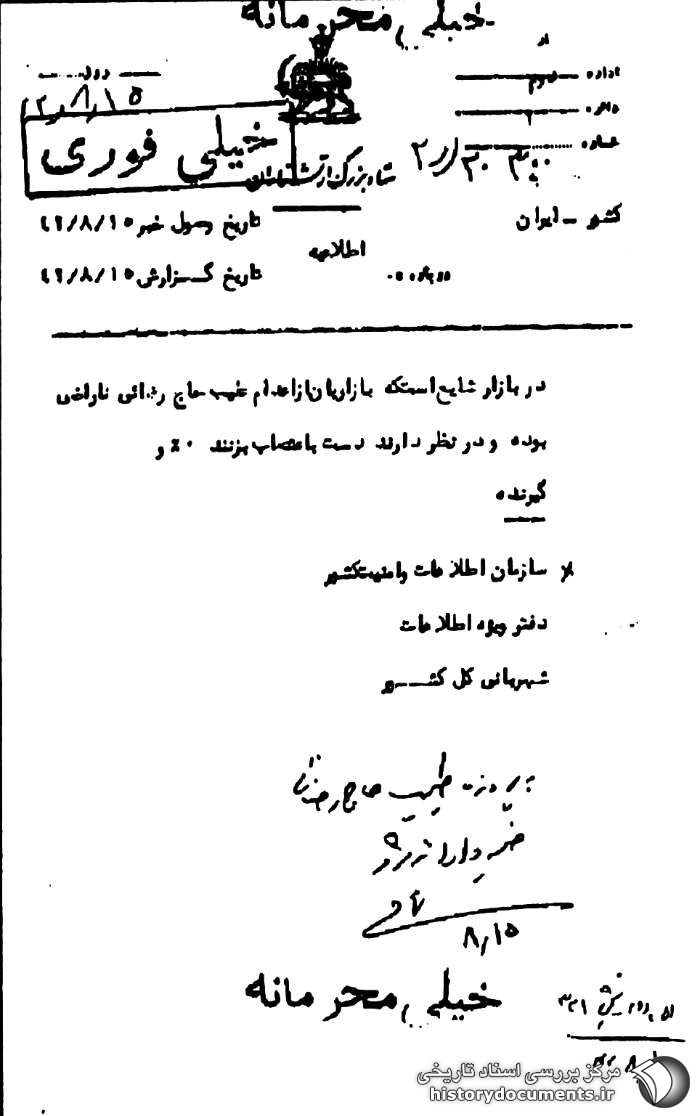 خیلی محرمانه
از
اداره سوم
دائره
شماره
خیلی فوری
ستاد بزرگ ارتشتاران
کشور - ایران
تاریخ وصول خبر ۴۲/۸/۱۵
اطلاعیه
درباره
تاریخ گزارش ۴۲/۸/۱۵
در بازار شایع استکه بازاریان از اعدام طیب حاج رضائی ناراضی
بوده و در نظر دارند دست باعتصاب بزنند
گیرنده
سازمان اطلاعات و امنیت کشور
دفتر ویژه اطلاعات
شهربانی کل کشور
طیب حاج رضائی
۸/۱۵
خیلی محرمانه
مرکز بررسی اسناد تاریخی
historydocuments.ir